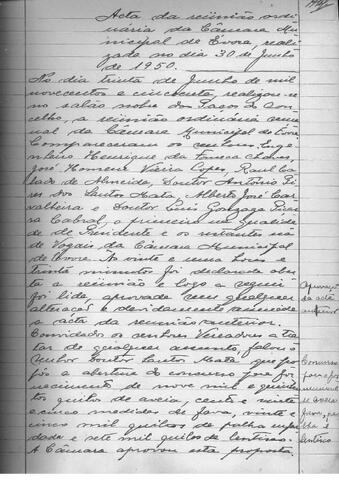 Acta da reünião ordi-
nária da Câmara Mu-
nicipal de Évora, reali-
zada no dia 30 de Junho
de 1950.
No dia trinta de Junho de mil
novecentos e cincoenta, realizou-se
no salão nobre dos Paços do Con-
celho, a reünião ordinária sema-
nal da Câmara Municipal de Évora.
Compareceram os senhores Enge-
nheiro Henrique da Fonseca Chaves,
José Homem Vieira Lopes, Raul Ca-
de Almeida, Doutor António Pi-
res dos Santos Mata, Alberto José Car-
valheira e Doutor Luís Gonzaga
Cabral, o primeiro na qualidade
de Presidente e os restantes na
de Vogais da Câmara Municipal
de Évora. Às vinte e uma horas e
trinta minutos foi declarada aber-
ta a reünião e logo a seguir
foi lida, aprovada sem qualquer
alteração e devidamente assinada
a acta da reünião anterior.
Aprovação
da acta
anterior
Convidados os senhores Vereadores a tra-
tar de qualquer assunto, falou o
Senhor Doutor Santos Mata que pro-
pôs a abertura do concurso para for-
necimento de nove mil e quinhen-
tos quilos de aveia, cento e vinte
e cinco medidas de fava, vinte e
cinco mil quilos de palha enfar-
dada e sete mil quilos de
A Câmara aprovou esta proposta.
Concurso
para for
de aveia
fava, pa-
lha e